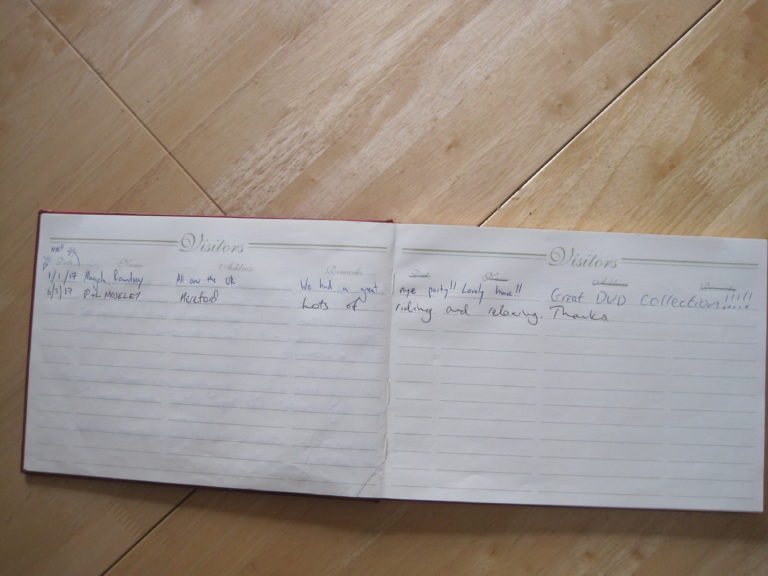 Visitors
Visitors
Date Name Address Remarks
Date Name Address Remarks
1/1/17 All over the UK We had a great nye party!! Lovely house!! Great DVD Collection!!!!!
6/3/17 P+L MOSELEY Hereford Lots of riding and relaxing. Thanks